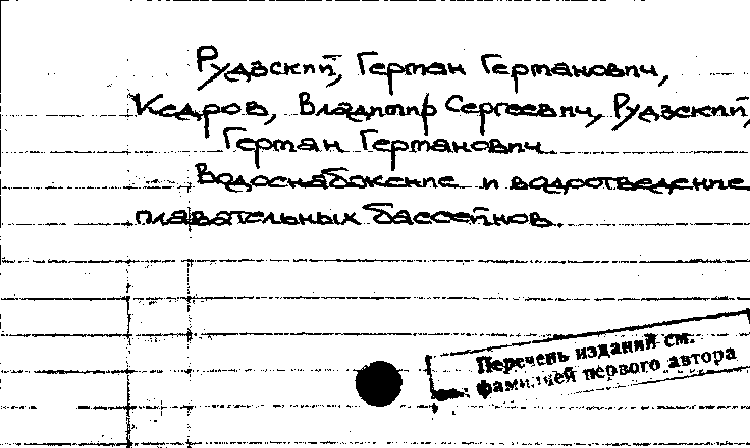 Рудзский, Герман Германович,
Кедров, Владимир Сергеевич, Рудзский,
Герман Германович.
Водоснабжение и водоотведение
плавательных бассейнов.
Перечень изданий см.
фамилией первого автора